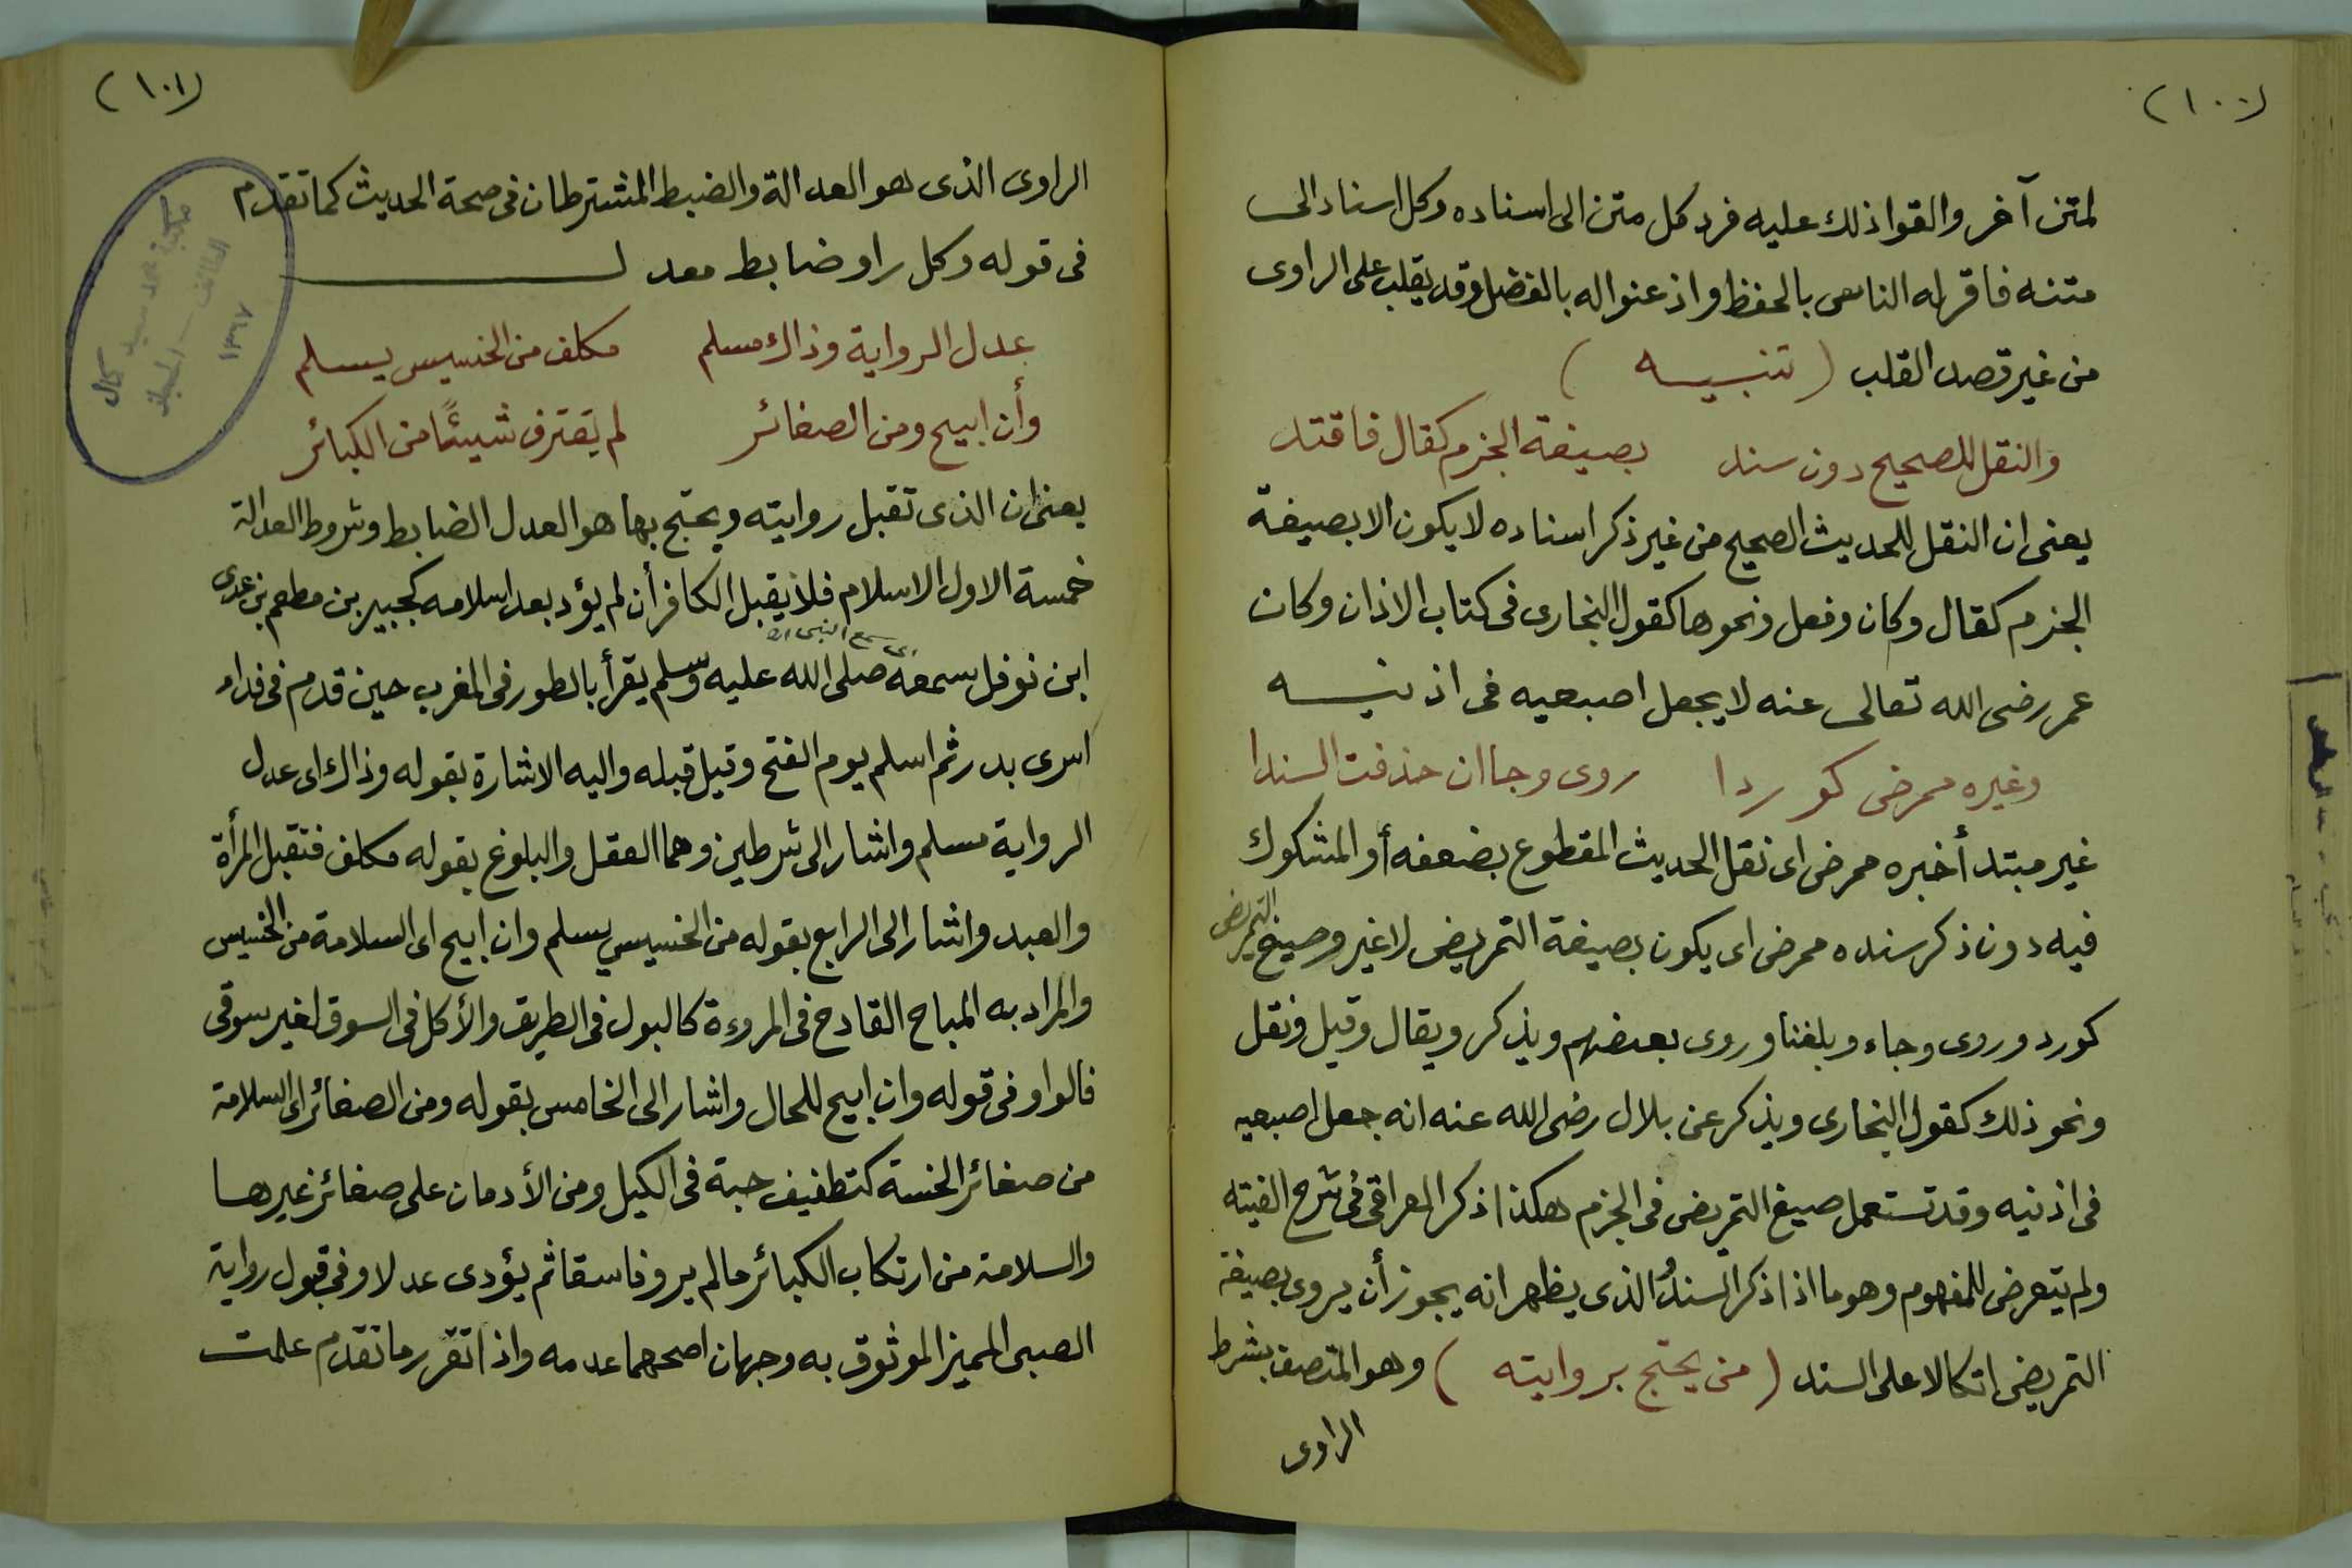 (١٠٠)
لمتن آخر والقوا ذلك عليه فرد كل متن الى اسناده وكل اسناد الى
متنه فاقر له الناس بالحفظ واذعنوا له بالفضل وقد يقلب على الراوى
من غير قصد القلب ( تنبيه )
والنقل للصحيح دون سند بصيغة الجزم كقال فاقتد
يعنى ان النقل للحديث الصحيح من غير ذكر اسناده لا يكون الا بصيغة
الجزم كقال وكان وفعل ونحوها كقول البخارى فى كتاب الاذان وكان
عمر رضى الله تعالى عنه لا يجعل اصبعيه فى اذنيه
وغيره ممرض كوردا روى وجا ان حذفت السندا
غير مبتدأ خبره ممرض اى نقل الحديث المقطوع بضعفه أو المشكوك
فيه دون ذكر سنده ممرض اى يكون بصيغة التمريض لا غير وصيغ التمريض
كورد وروى وجاء وبلغنا وروى بعضهم ويذكر ويقال وقيل ونقل
ونحو ذلك كقول البخارى ويذكر عن بلال رضى الله عنه انه جعل اصبعيه
فى اذنيه وقد تستعمل صيغ التمريض فى الجزم هكذا ذكر العراقى فى شرح الفيته
ولم يتعرض للمفهوم وهو ما اذا ذكر السند والذى يظهر انه يجوز أن يروى بصيغة
التمريض اتكالا على السند ( من يحتج بروايته ) وهو المتصف بشرط
الراوى
(١٠١)
الراوى الذى هو العدالة والضبط المشترطان فى صحة الحديث كما تقدم
فى قوله وكل راو ضابط معدل
عدل الرواية وذاك مسلم مكلف من الخسيس يسلم
وأن ابيح ومن الصغائر لم يقترف شيئًا من الكبائر
يعنى ان الذى تقبل روايته ويحتج بها هو العدل الضابط وشروط العدالة
خمسة الاول الاسلام فلا يقبل الكافر أن لم يؤد بعد اسلامه كجبير بن مطعم بن عدى
ابن نوفل سمعه صلى الله عليه وسلم يقرأ بالطور فى المغرب حين قدم فى فداء
اسرى بدر ثم اسلم يوم الفتح وقيل قبله واليه الاشارة بقوله وذاك اى عدل
الرواية مسلم واشار الى شرطين وهما العقل والبلوغ بقوله مكلف فتقبل المرأة
والعبد واشار الى الرابع بقوله من الخسيس يسلم وان ابيح اى السلامة من الخسيس
والمراد به المباح القادح فى المروءة كالبول فى الطريق والأكل فى السوق لغير سوقى
فالواو فى قوله وان ابيح للحال واشار الى الخامس بقوله ومن الصغائر اى السلامة
من صغائر الخسة كتطفيف حبة فى الكيل ومن الأدمان على صغائر غيرها
والسلامة من ارتكاب الكبائر ما لم يرو فاسقا ثم يؤدى عدلا وفى قبول رواية
الصبى المميز الموثوق به وجهان اصحهما عدمه واذا تقرر ما تقدم علمت